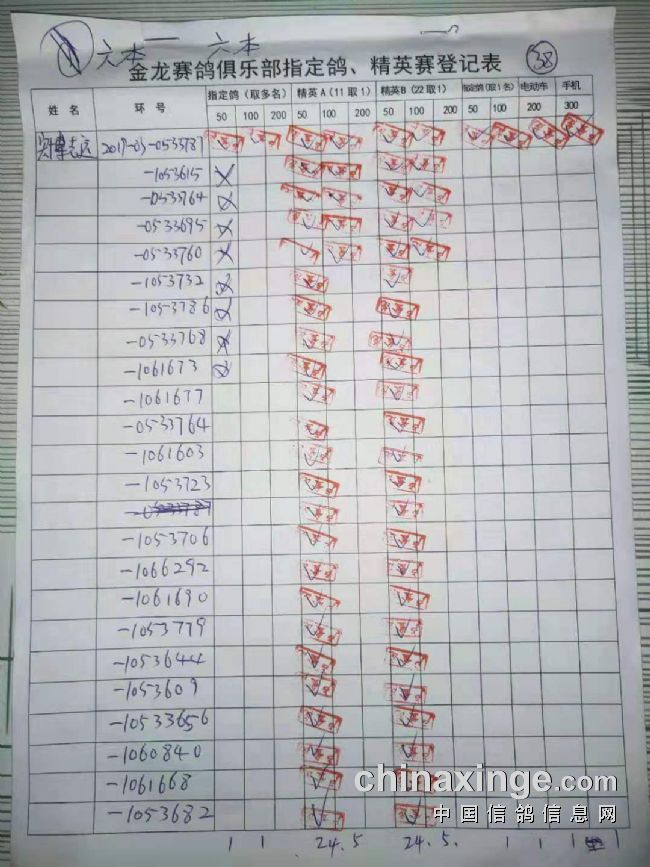 六本一 六本
金龙赛鸽俱乐部指定鸽、精英赛登记表 38
姓名 环号 指定鸽(取多名) 精英A(11取1) 精英B(22取1) 指定鸽(取1名) 电动车 手机
50 100 200 50 100 200 50 100 200 50 100 200 300
志远 2017-03-0533787
-1053615
-0533764
-0533695
-0533760
-1053732
-1053786
-0533768
-1061673
-1061677
-0533764
-1061603
-1053723
-1053706
-1066292
-1061690
-1053779
-1053644
-1053609
-10533656
-1060840
-1061668
-1053682
1 1 24.5 24.5. 1 1 1
chinaxinge.com
中国信鸽信息网